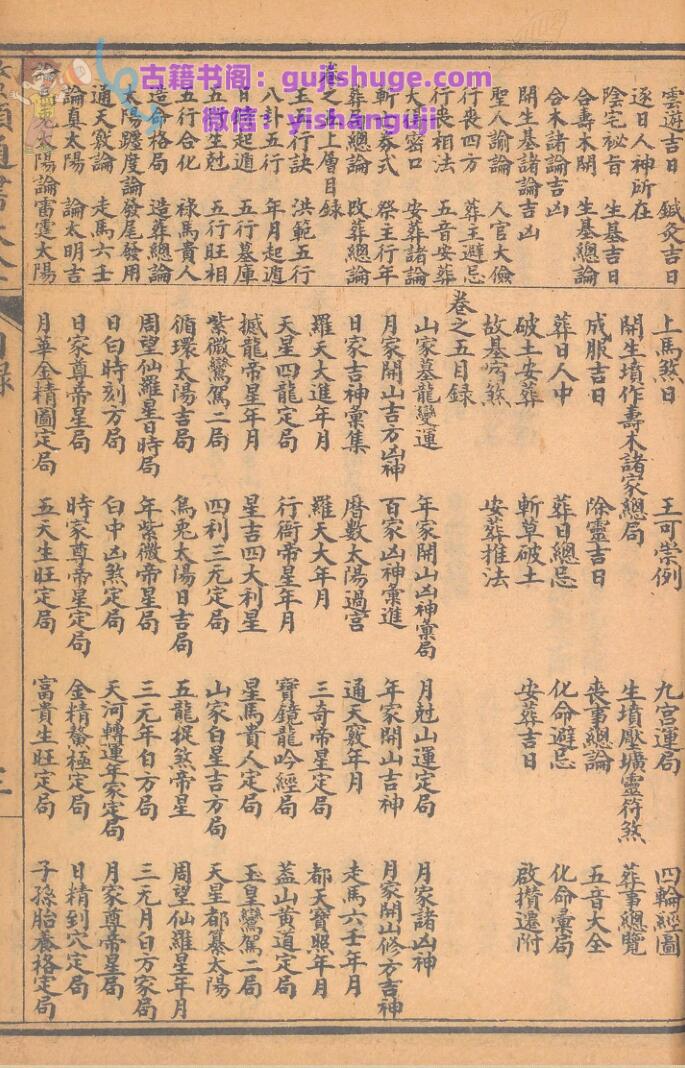 古籍书阁：gujishuge.com
微信：yishanguji
雲遊吉日　鍼灸吉日
逐日人神所在
陰宅祕旨　生基吉日
合壽木開　生基總論
合木諸論吉凶
開生基諸論吉凶
聖人諭論　人官大儉
行喪四方　葬主避忌
行喪相法　五音安葬
大山密口　安葬諸論
斬　泰式　祭主行年
葬　總論　改葬總論
卷之五上層目録
五行訣　洪範五行
八卦五行　年月起遁
日　起遁　五行墓庫
五　生尅　五行旺相
五行合化　祿馬貴人
造命格局　造葬總論
太陽躔度論　發尾發用
通天竅論　走馬六壬
論真太陽　論太明吉
論烏兔太陽論　雷霆太陽
上馬煞日　王可崇例　九宮運局　四輪經圖
開生墳作壽木諸家總局　生墳壓壙靈符煞　葬事總覽
成服吉日　除靈吉日　喪事總論　五音大全
葬日人中　葬日總忌　化命避忌　化命彙局
破土安葬　斬草破土　安葬吉日　啟攢遷附
故基啇煞　安葬推法
卷之五目録
山家墓龍變運　年家開山凶神彙局　月尅山運定局　月家諸凶神
月家開山吉方凶神　百家凶神彙進　年家開山吉神　月家開山修方吉神
日家吉神彙集　曆數太陽過宮　通天竅年月　走馬六壬年月
羅天大進年月　羅天大年月　三奇帝星定局　都天寶照年月
天星四龍定局　行衙帝星年月　寶鏡龍吟經局　蓋山黄道定局
撼龍帝星年月　星吉四大利星　星馬貴人定局　玉皇鸞駕二局
紫微鸞駕二局　四利三元定局　山家白星吉方局　天星都纂太陽
循環太陽吉局　烏兎太陽日吉局　五龍捉煞帝星　周望仙羅星年月
周望仙羅星日時局　年紫微帝星局　三元年白方局　三元月白方家局
日白時刻方局　白中凶煞定局　天河轉運年家定局　月家尊帝星局
日家尊帝星局　時家尊帝星定局　金精鰲極定局　日精到穴定局
月華金精圖定局　五天生旺定局　富貴生旺定局　子孫胎養格定局
目録
三